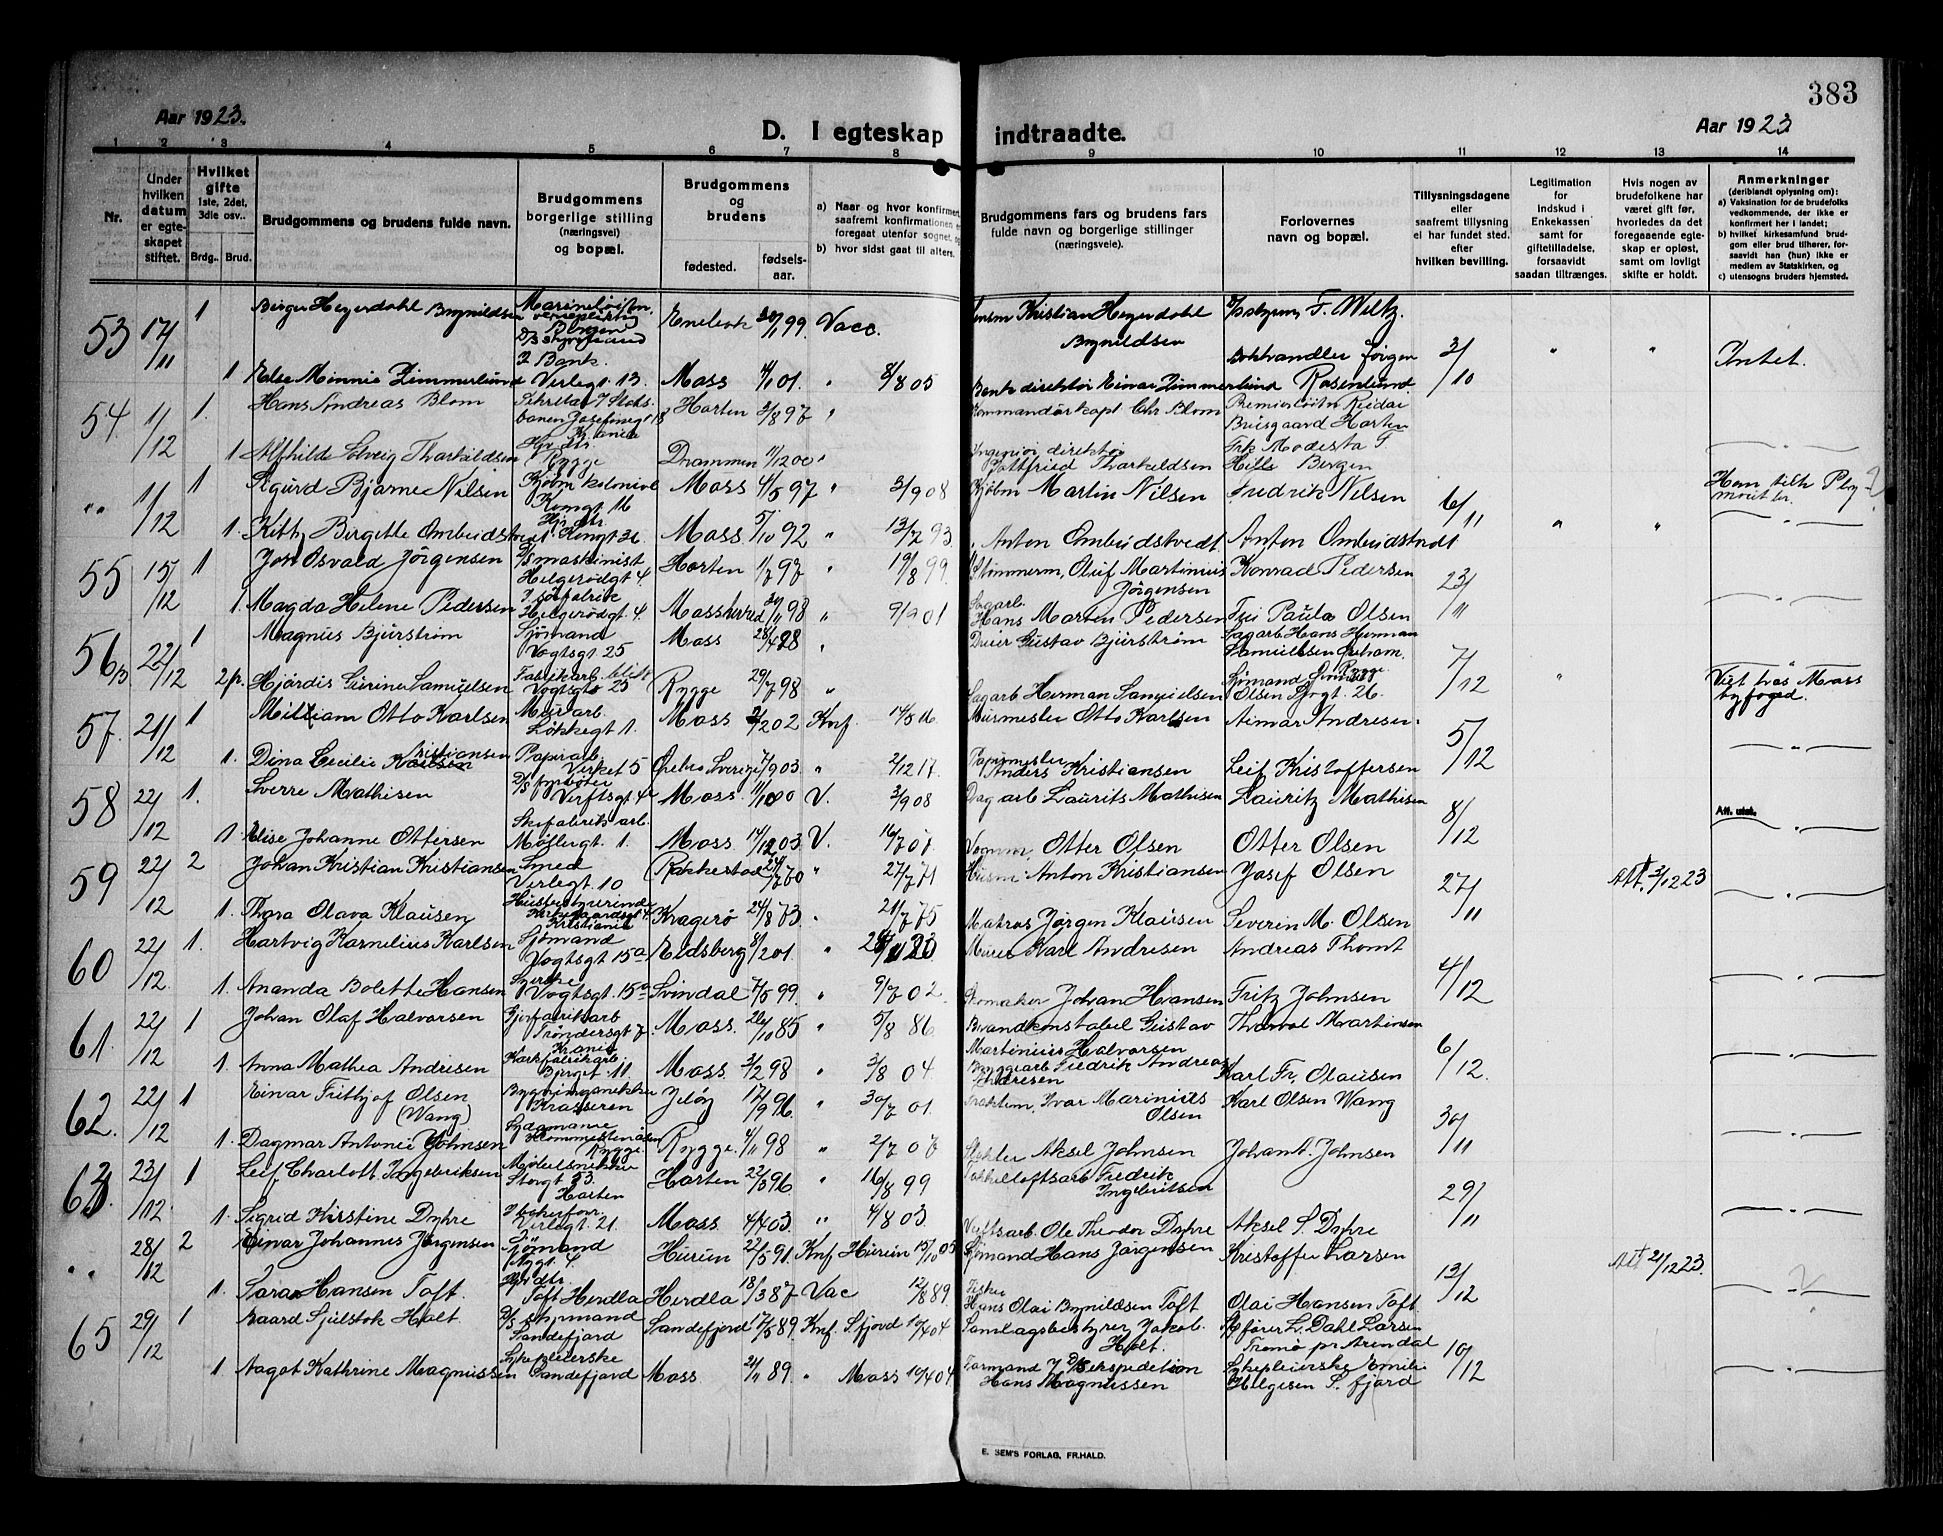 383
Aar 1923.
D. I egteskap indtraadte.
Aar 1923
1 2 3 4 5 6 7 8 9 10 11 12 13 14
Nr.
Under hvilken datum er egteskapet stiftet.
Hvilket gifte 1ste, 2det, 3die osv..
Brdg.. Brud.
Brudgommens og brudens fulde navn.
Brudgommens borgerlige stilling (næringsvei) og bopæl.
Brudgommens og brudens
fødested. fødselsaar.
a) Naar og hvor konfirmert, saafremt konfirmationen er foregaat utenfor sognet, og
b) hvor sidst gaat til alters.
Brudgommens fars og brudens fars fulde navn og borgerlige stillinger (næringsveie).
Forlovernes navn og bopæl.
Tillysningsdagene eller saafremt tillysning ei har fundet sted. efter hvilken bevilling.
Legitimation for Indskud i Enkekassen samt for giftetilladelse, forsaavidt saadan tiltrænges.
Hvis nogen av brudefolkene har været gift før, hvorledes da det foregaaende egteskap er opløst, samt om lovligt skifte er holdt.
Anmerkninger (deriblandt oplysning om):
a) Vaksination for de brudefolks vedkommende, der ikke er konfirmert her i landet;
b) hvilket kirkesamfund brudgom eller brud tilhører, forsaavidt han (hun) ikke er medlem av Statskirken, og
c) utensogns bruders hjemsted.
53 17/11 1 Birger Heyerdahl Brynildsen Eneback 99 Vacc. Kristian Heyerdahl Brynildsen F. Wiltz.
1 Else Minnie Zimmerlund Bank. Verlegt. 13. Moss 01. " 8/8 05 Bankdirektør Einar Zimmerlund Bokhandler Jörgen Rosenlund. 3/10 " " Intet.
54. 1/12 1. Hans Andreas Blom Horten 3/8 97 " Kommandørkapt. Chr Blom Premierløitn Reidar Horten
1 Alfhilde Solveig Tharkildsen Rygge Drammen 1/12 00 " Ingeniør direktør Gottfried Tharkildsen Frk Modesta F Hille Bergen
" 1/12 1 Sigurd Bjarne Nilsen Kongt 16 Moss 4/5 97 " 3/9 08 Kjøbm Martin Nilsen Fredrik Nilsen 6/11
1. Kitty Birgitte Ombudstvedt Kongt 36 Moss 5/10 92 " 13/7 93 Anton Ombudstvedt Anton Ombudstvedt " "
55 15/12 1 Jon Osvald Jörgensen D/S maskinist Helgerødgt 4. Horten 1/7 97 " 19/8 99 Oluf Martinius Jörgensen Konrad Pedersen 23/11
1. Magda Helene Pedersen Helgerødgt 4. Mossherred 98 " 9/9 01 Sagarb. Hans Morten Pedersen Fru Paula Olsen
56 22/12 1 Magnus Bjurström Sjömand Vogtsgt 25 Moss 88 Gustav Bjurström Sagarb Hans Herman Samuelsen 7/12
2 fr. Hjördis Gurine Samuelsen Fabrikarb. Vogtsgt 25 Rygge 29/7 98 " Sagarb Herman Samuelsen Sjömand Olsen 26. " Viet hos Moss byfoged.
57. 21/12 1 William Otto Karlsen Murarb Løkkegt 1. Moss 02 Knf. 14/5 16 Murmester Otto Karlsen Aimar Andresen 5/12
1. Dina Cecilie Kristiansen Papirarb Verket 5 Örebro Sverige 7/9 03. " 2/12 17. Papirmester Anders Kristiansen Leif Kristoffersen
58 22/12 1. Sverre Mathisen D/S fyrbøter Verftsgt 4 Moss 00 V. 3/9 08 Dagarb Laurits Mathisen Lauritz Mathisen 8/12 Att. utst.
1. Elise Johanne Ottersen Skofabrik arb. Møllergt. 1. Moss 14/12 03 V. 16/7 07 Vognm. Otter Olsen Otter Olsen
59 22/12 2 Johan Kristian Kristiansen Smed Verlegt. 10 Rakkestad 70 " 27/7 71 Husm. Anton Kristiansen Josef Olsen 27/11 Att. 3/12 23
1. Thora Olava Klausen Husbestyrerinde Kristiania Kragerö 24/8 73 " 21/7 75 Matros Jørgen Klausen Severin M. Olsen
60 22/12. 1. Hartvig Kornelius Karlsen Sjömand Vogtsgt. 15a Eidsberg 8/2 01 " Murer Karl Andresen Andreas Thomt 4/12
1. Ananda Bolette Hansen Vogtsgt. 15a Svindal 7/5 99. " 9/7 02. Skomaker Johan Hansen Fritz Johnsen
61. 22/12 1 Johan Olaf Halvorsen Trøndersgt 7. Moss. 26/10 85 " 5/8 86 Brandkonstabel Gustav Martinius Halvorsen Thorval Martinsen 6/12.
1. Anna Mathea Andresen Korkfabrikarb. Bjerget. 11. Moss. 3/2 98 " 3/8 04. Byggearb Fredrik Andreas Andresen Karl Fr. Olausen
62. 22/12 1 Einar Fritjof Olsen (Wang) Bygningssnekker Krasseren Jelöy 17/9 96 " 30/7 01. Ivar Marinius Olsen Karl Olsen Wang 30/11
1. Dagmar Antonie Johnsen Rygge. Rygge. 4/11 98 " 2/7 07 Aksel Johnsen Johan A. Johnsen
63. 23/12 1 Leif Charlott Ingebriksen Møbelsnekker Storgt 33. Horten Horten 22/3 96 " 16/8 99 Takkeloftsarb Fredrik Ingebritsen 29/11
1. Sigrid Kirstine Dyhre Verlegt. 21. Moss. 4/4 03. " 4/8 03. Verftsarb. Ole Theodor Dyhre Aksel S. Dyhre
" 28/12 2 Einar Johannes Jørgensen Sjömand Nygt. 4. Hurum 22/5 91 Knf Hurum 15/10 05 Sjömand Hans Jörgensen Kristoffer Larsen 13/12 Att 21/12 23.
1. Sara Hansen Toft. Toft Herdla Herdla 18/3 87 Vac 12/8 89. Fisker Hans Olai Brynildsen Toft Olai Hansen Toft.
65 29/12 1 Baard Sjulstok Holt. D/S styrmand Sandefjord Sandefjord 17/5 89. Knf. S.fjord 10/4 04 Samlagsbestyrer Jakob. Holt. L. Dahl Larsen Tromø pr Arendal 10/12
1 Aagot Kathrine Magnussen Sykepleierske Sandefjord Moss 21/11 89 " Moss 10/4 04. Formand Hans Magnussen Sykepleierske Emilie Helgesen S. fjord
E. SEM'S FORLAG, FR.HALD.